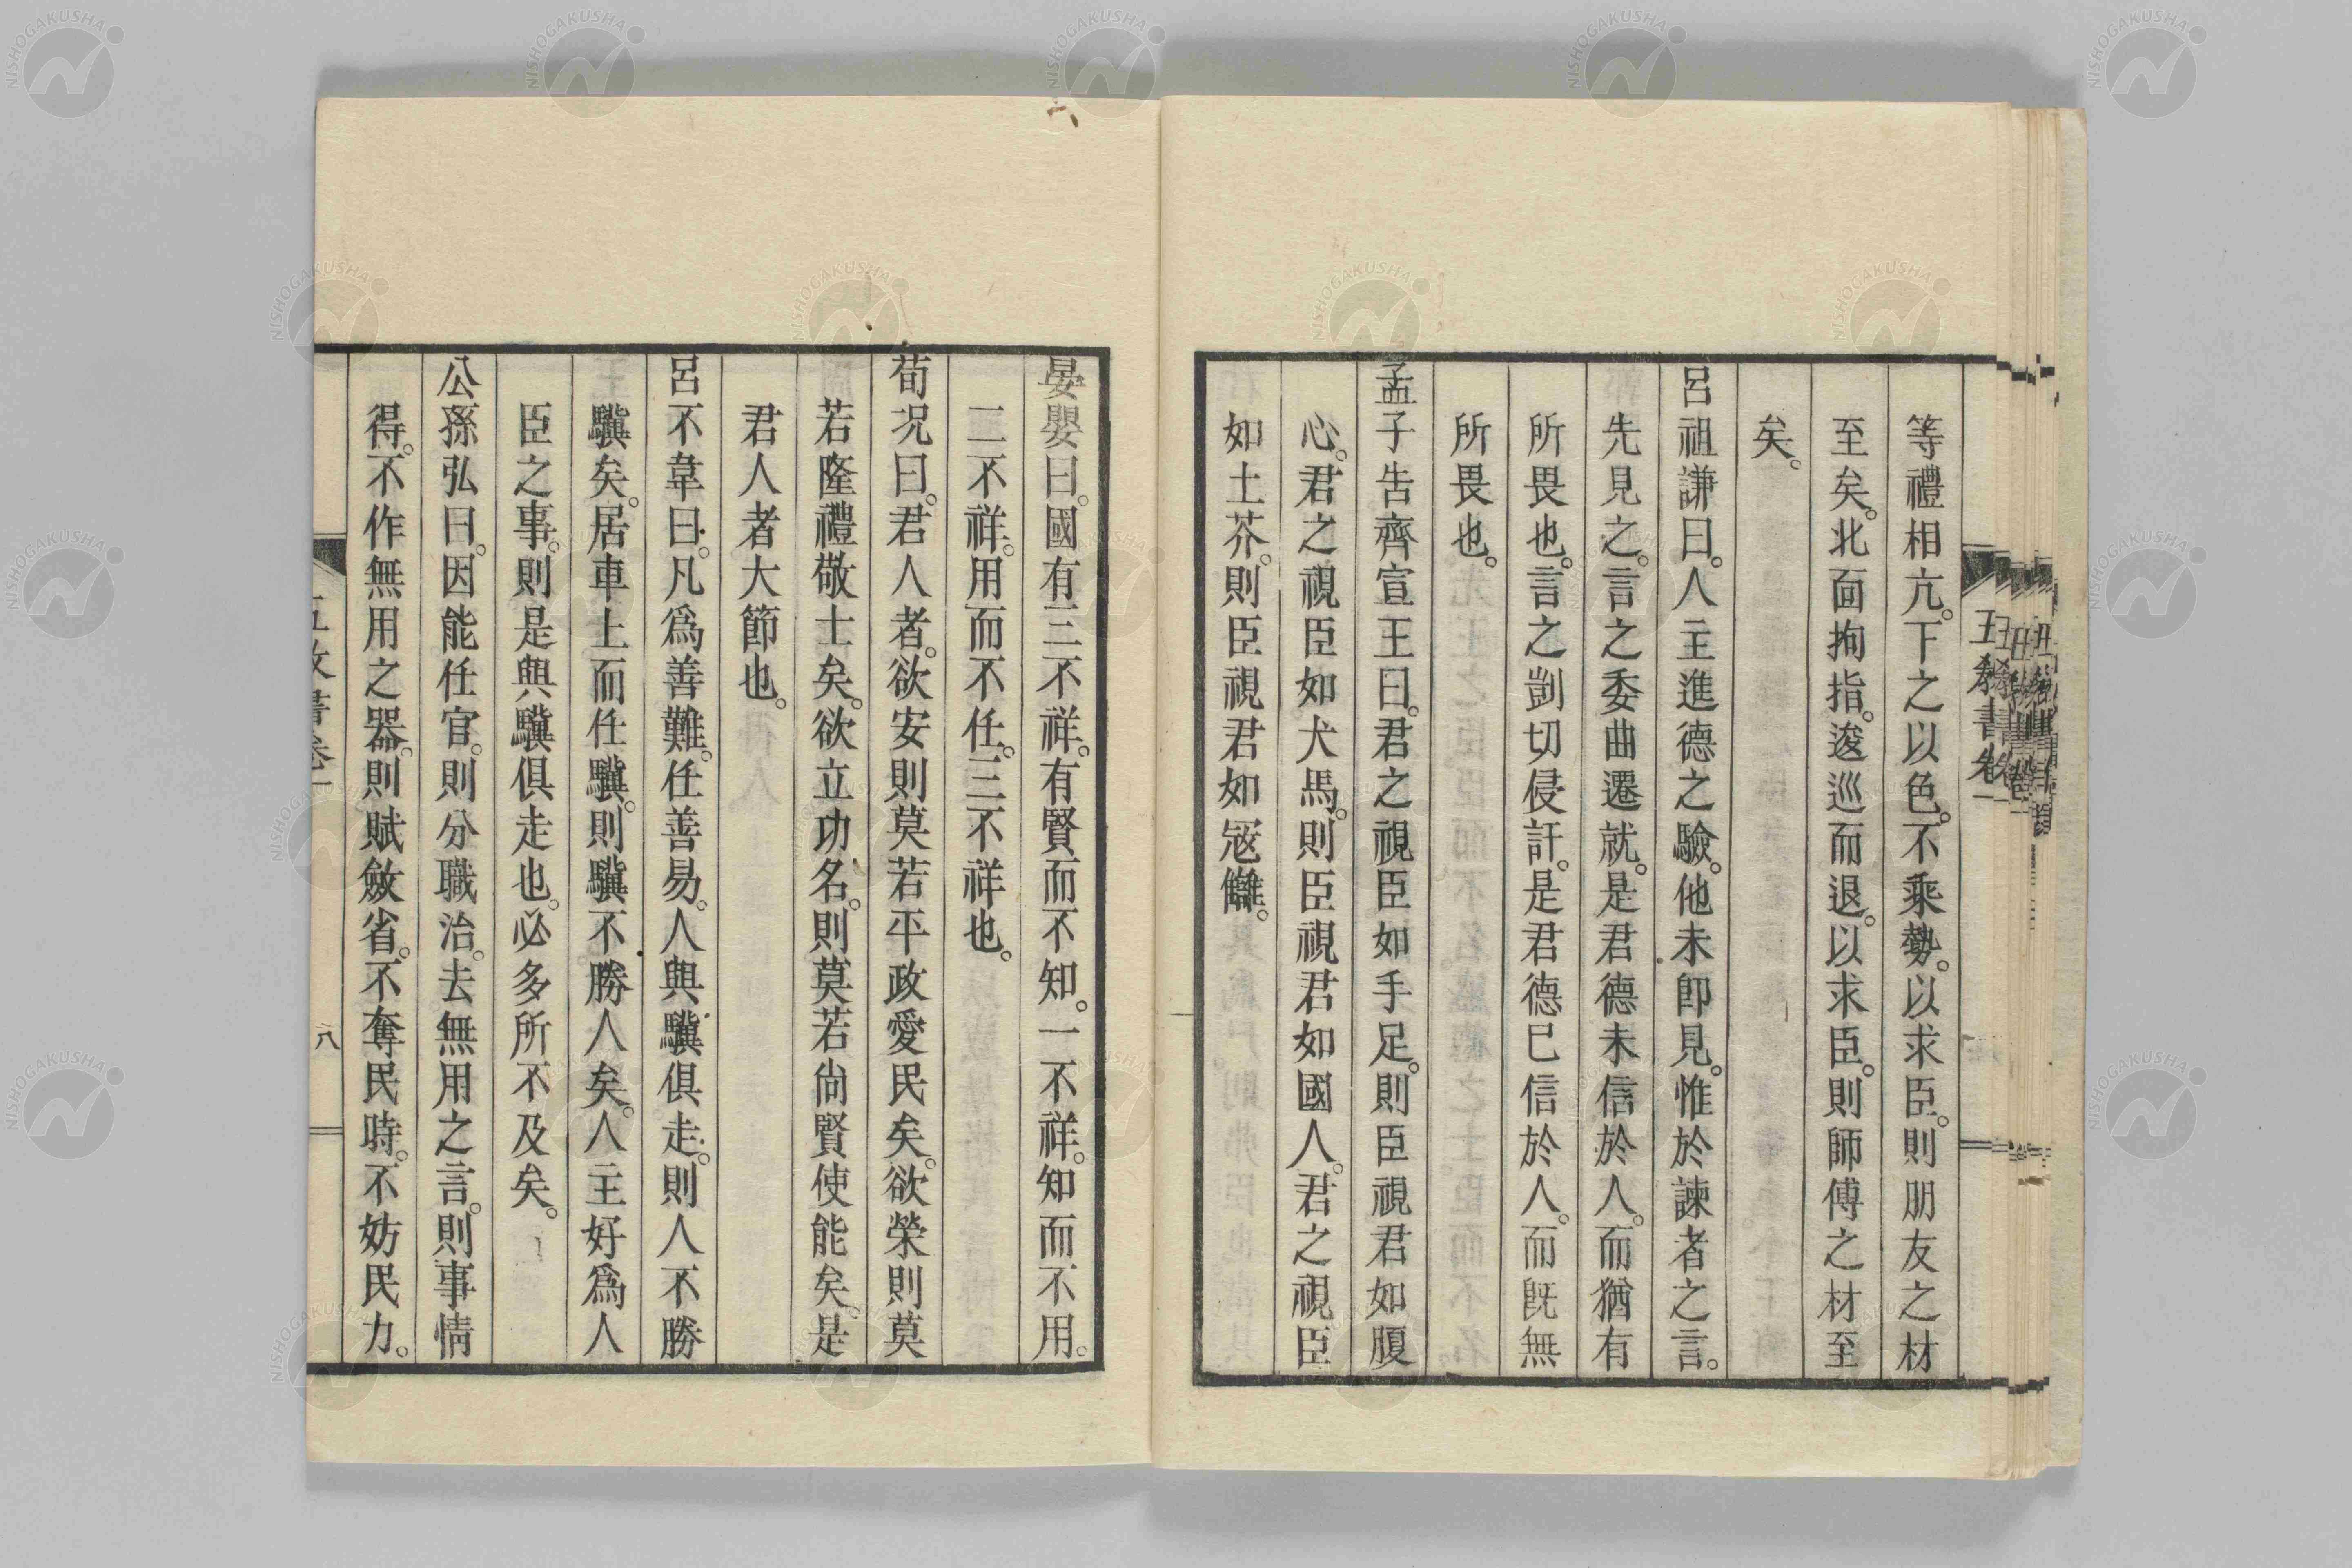 五教書卷一
等禮相亢。下之以色。不乘勢。以求臣。則朋友之材
至矣。北面拘指。逡巡而退。以求臣。則師傅之材至
矣。
呂祖謙曰。人主進德之驗。他未卽見。惟於諫者之言。
先見之。言之委曲遷就。是君德未信於人。而猶有
所畏也。言之剴切侵訐。是君德已信於人。而旣無
所畏也。
孟子告齊宣王曰。君之視臣如手足。則臣視君如腹
心。君之視臣如犬馬。則臣視君如國人。君之視臣
如土芥。則臣視君如寇讎。
晏嬰曰。國有三不祥。有賢而不知。一不祥。知而不用。
二不祥。用而不任。三不祥也。
荀況曰。君人者。欲安則莫若平政愛民矣。欲榮則莫
若隆禮敬士矣。欲立功名。則莫若尚賢使能矣。是
君人者大節也。
呂不韋曰。凡爲善難。任善易。人與驥俱走。則人不勝
驥矣。居車上而任驥。則驥不勝人矣。人主好爲人
臣之事。則是與驥俱走也。必多所不及矣。
公孫弘曰。因能任官。則分職治。去無用之言。則事情
得。不作無用之器。則賦斂省。不奪民時。不妨民力。
八
NISHOGAKUSHA